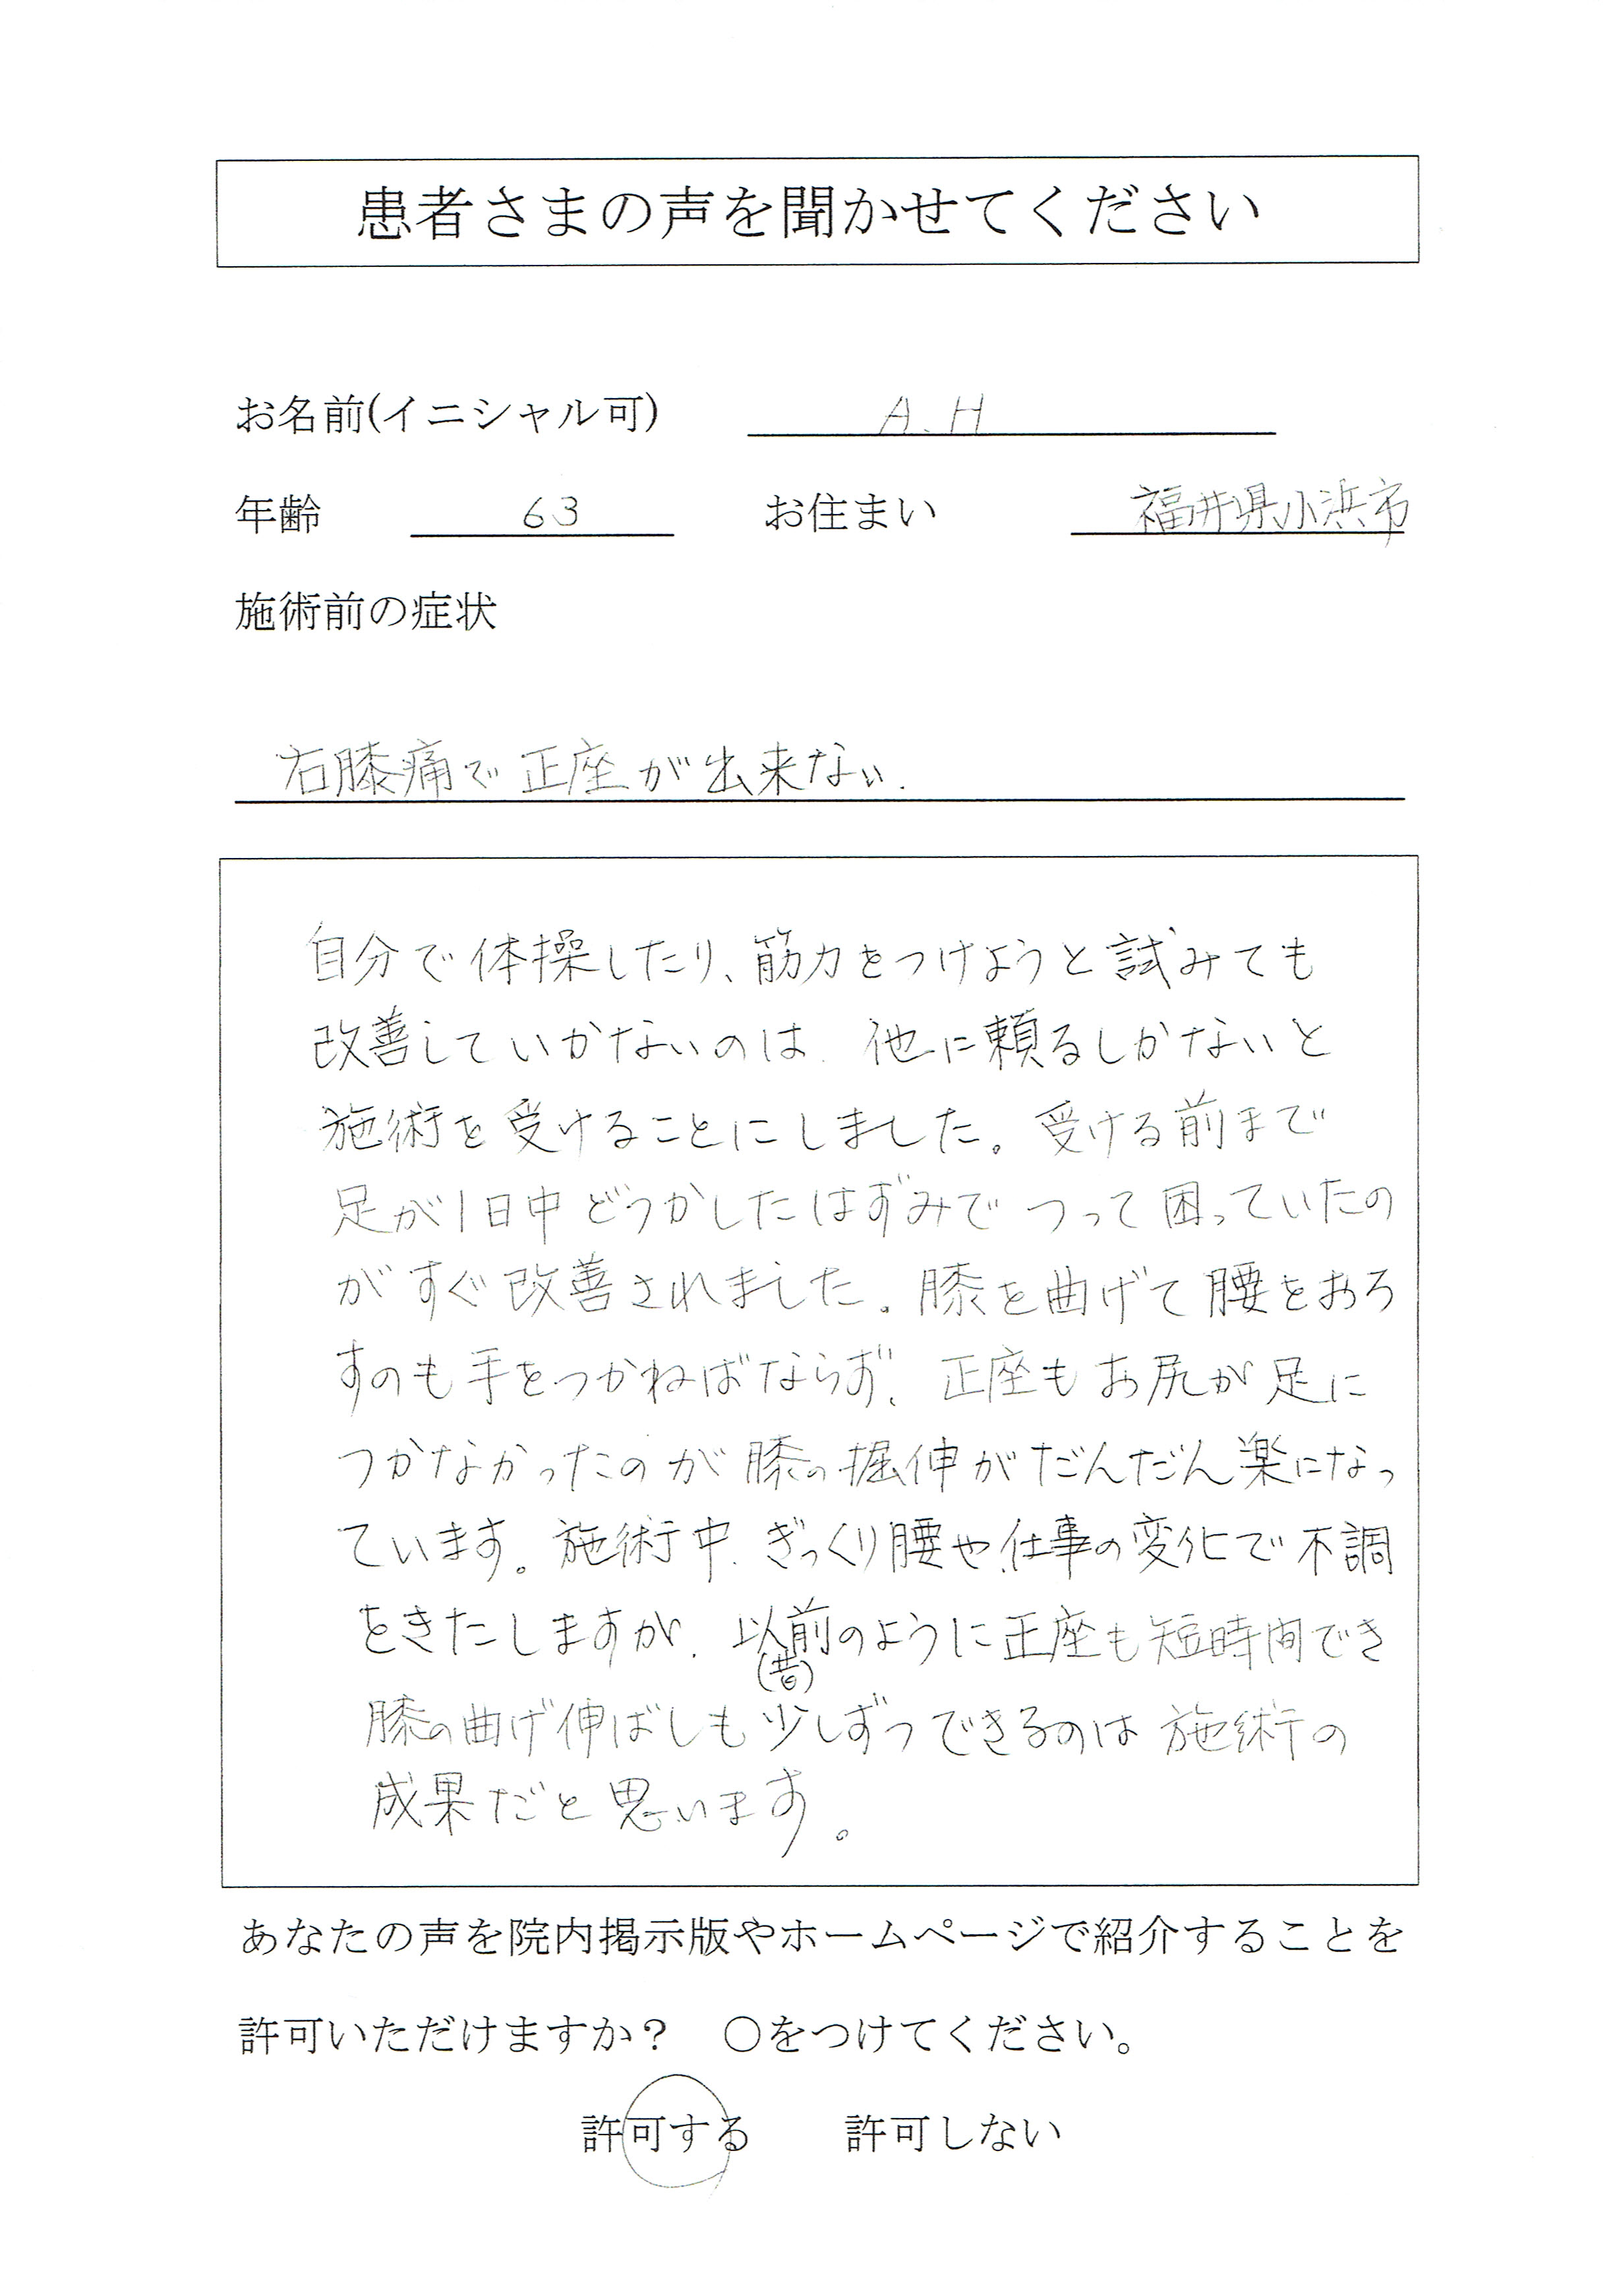 患者さまの声を聞かせてください
お名前(イニシャル可) A.H
年齢 63 お住まい 福井県小浜市
施術前の症状
右膝痛で正座が出来ない.
自分で体操したり、筋力をつけようと試みても
改善していかないのは、他に頼るしかないと
施術を受けることにしました。受ける前まで
足が1日中どうかしたはずみでつって困っていたの
がすぐ改善されました。膝を曲げて腰をおろ
すのも手をつかねばならず、正座もお尻が足に
つかなかったのが膝の掘伸がだんだん楽になっ
ています。施術中、ぎっくり腰や、仕事の変化で不調
をきたしますが、以前のように正座も短時間でき
(昔)
膝の曲げ伸ばしも少しずつできるのは施術の
成果だと思います。
あなたの声を院内掲示版やホームページで紹介することを
許可いただけますか? ○をつけてください。
許可する 許可しない